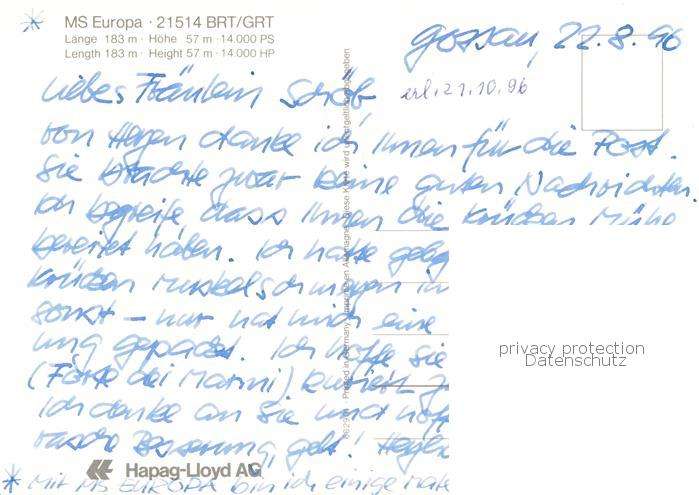 MS Europa · 21514 BRT/GRT
Länge 183 m · Höhe 57 m · 14.000 PS
Length 183 m · Height 57 m · 14.000 HP
Gossau, 22.8.96
erl. 21.10.96
Liebes Fräulein Schöb
Von Herzen danke ich Ihnen für die Post.
Sie brachte zwar keine guten Nachrichten.
Ich begreife dass Ihnen die Krücken Mühe
bereitet haben. Ich hatte
Krücken Muskelschmerzen
sonst - nur hat mich eine
ung gepackt. Ich hoffe Sie
(Forte dei Marmi)
Ich denke an Sie und
rasche Besserung geht! Herzl
Mit MS EUROPA bin ich einige
Hapag-Lloyd AG
privacy protection
Datenschutz